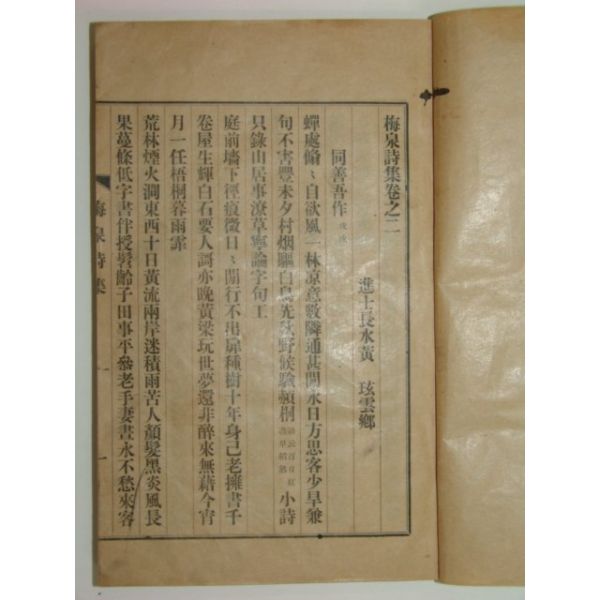 梅泉詩集卷之二
進士長水黃 玹雲鄉
同善吾作
蟬處翛〻自欲風一林凉意數隣通甚閒永日方思客少旱兼
句不害豐未夕村烟驅白鳥先秋野候驗頳桐 小詩
只錄山居事潦草寧論字句工
庭前墻下徑痕微日〻閒行不出扉種樹十年身已老擁書千
卷屋生輝白石要人謌亦晚黃梁玩世夢還非醉來無藉今宵
月一任梧桐暮雨霏
荒林煙火澗東西十日黃流兩岸迷積雨苦人顏髮黑炎風長
果蔓條低字書伴授髫齡子田事平參老手妻晝永不愁來客
梅泉詩集
一